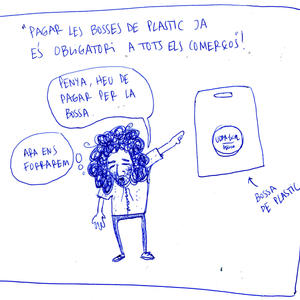 "PAGAR LES BOSSES DE PLASTIC JA
ÉS OBLIGATORI A TOTS ELS COMERÇOS"!
PENYA, HEU DE
PAGAR PER LA
BOSSA
ARA ENS
FORRAREM
BOSSA
DE PLASTIC